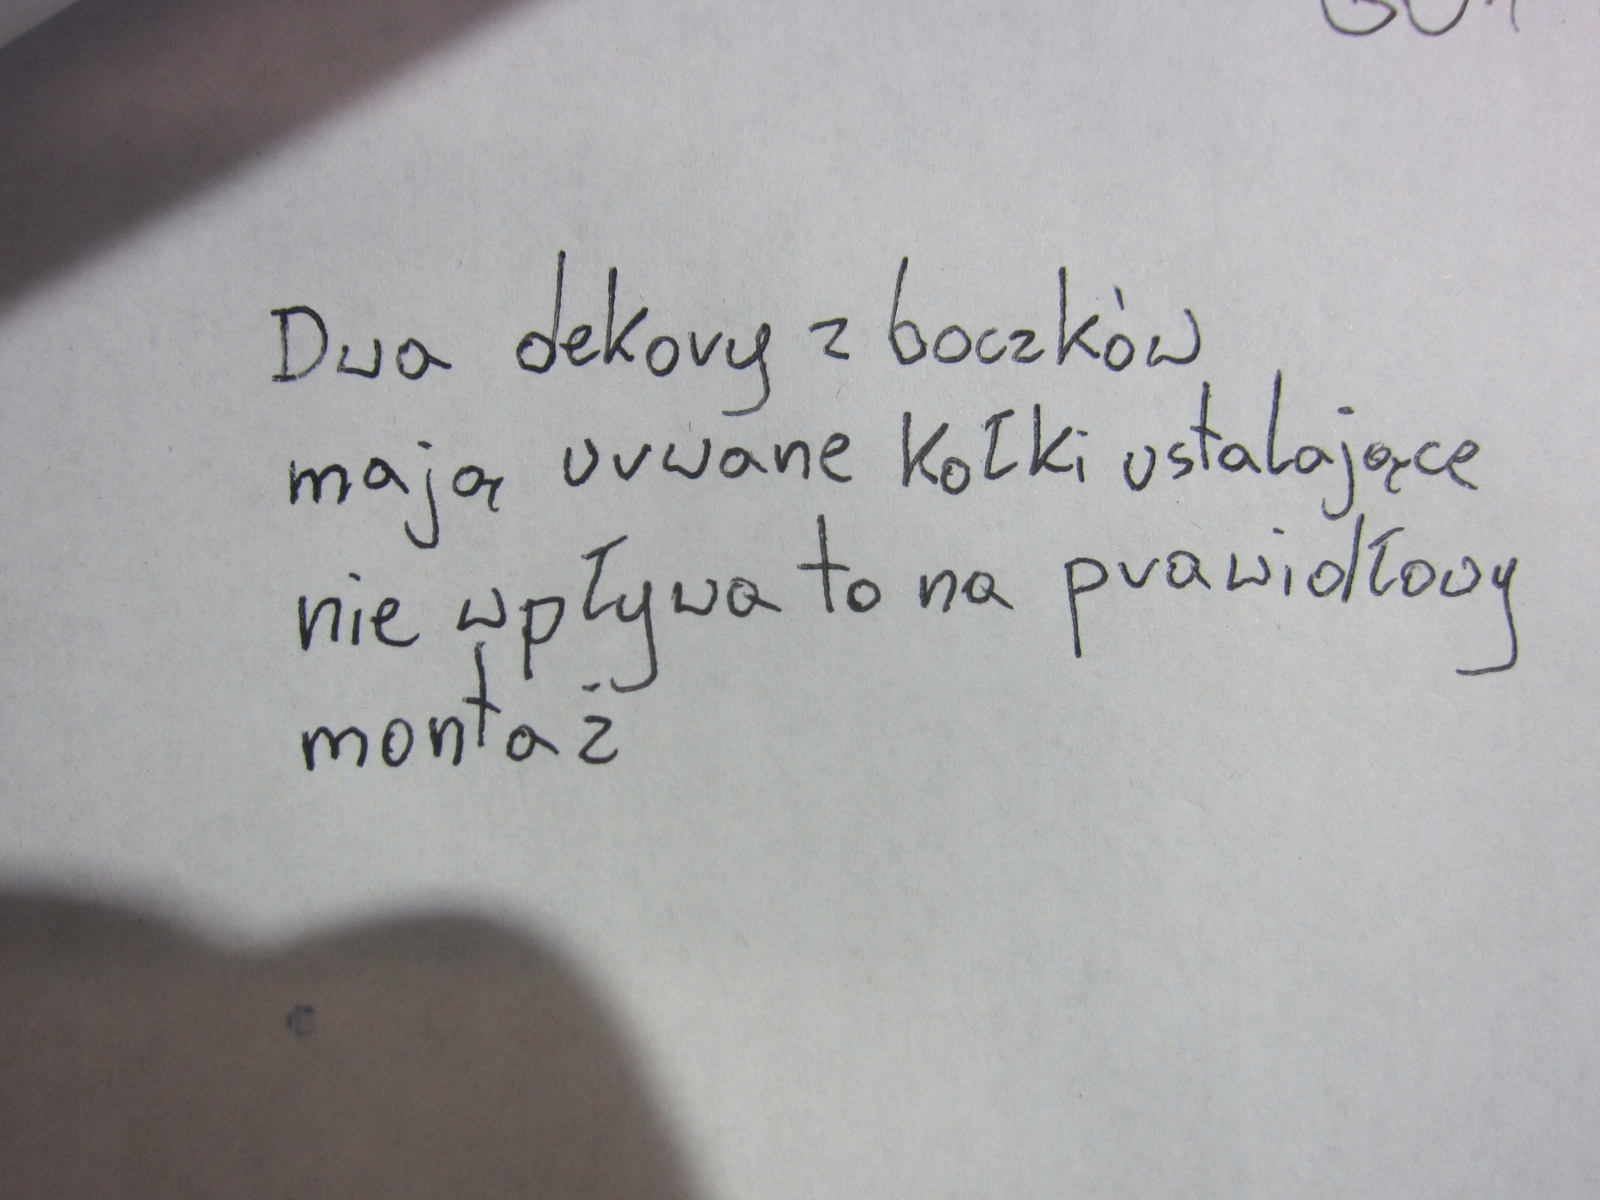 Dwa dekory z boczków
mają urwane kołki ustalające
nie wpływa to na prawidłowy
montaż